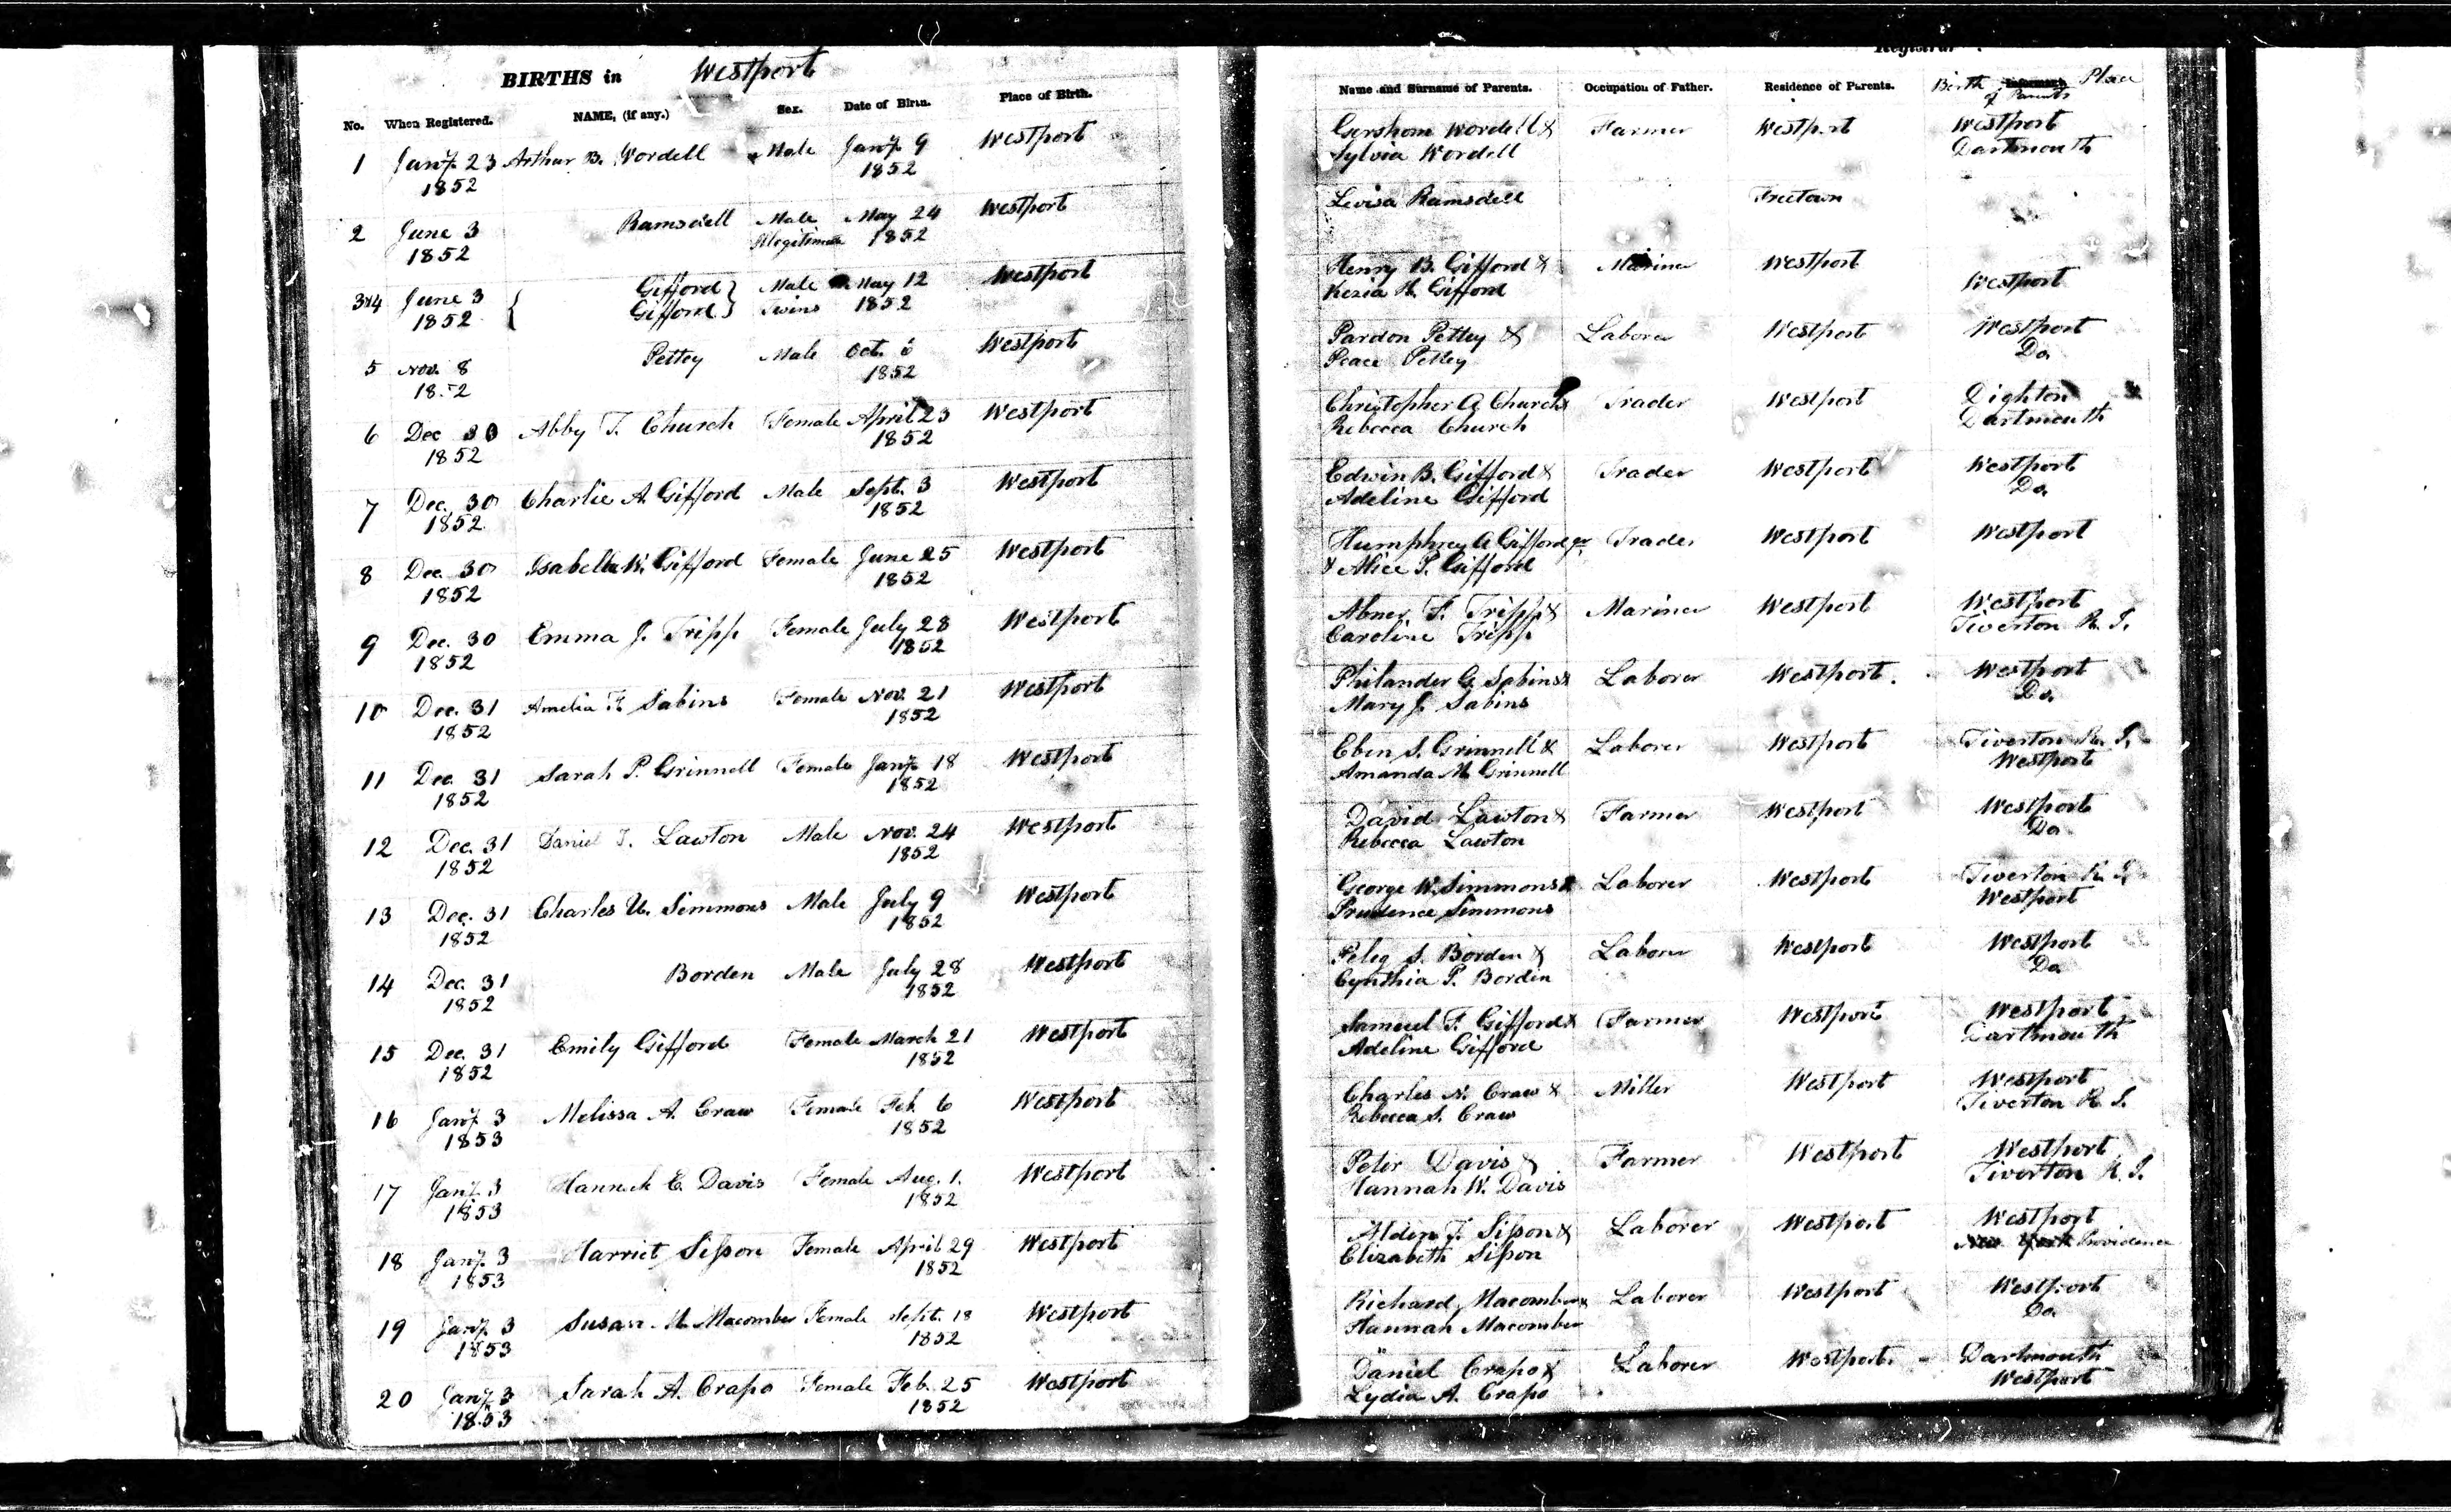 BIRTHS in Westport
No. When Registered. NAME, (if any.) Sex. Date of Birth. Place of Birth.
1 Jany. 23 Arthur B. Wordell Male Jany. 9 Westport
1852 1852
2 June 3 Ramsdell Male May 24 Westport
1852 Illegitimate 1852
3&4 June 3 { Gifford } Male May 12 Westport
1852 Gifford } Twins 1852
5 Nov. 8 Pettey Male Oct. 6 Westport
1852 1852
6 Dec 30 Abby T. Church Female April 23 Westport
1852 1852
7 Dec. 30 Charlie A. Gifford Male Sept. 3 Westport
1852 1852
8 Dec. 30 Isabella W. Gifford Female June 25 Westport
1852 1852
9 Dec. 30 Emma J. Tripp Female July 28 Westport
1852 1852
10 Dec. 31 Amelia F. Sabins Female Nov. 21 Westport
1852 1852
11 Dec. 31 Sarah P. Grinnell Female Jany. 18 Westport
1852 1852
12 Dec. 31 Daniel T. Lawton Male Nov. 24 Westport
1852 1852
13 Dec. 31 Charles U. Simmons Male July 9 Westport
1852 1852
14 Dec. 31 Borden Male July 28 Westport
1852 1852
15 Dec. 31 Emily Gifford Female March 21 Westport
1852 1852
16 Jany. 3 Melissa A. Craw Female Feb. 6 Westport
1853 1852
17 Jany. 3 Hannah E. Davis Female Aug. 1. Westport
1853 1852
18 Jany. 3 Harriet Sisson Female April 29 Westport
1853 1852
19 Jany. 3 Susan M. Macomber Female Sept. 18 Westport
1853 1852
20 Jany. 3 Sarah A. Crapo Female Feb. 25 Westport
1853 1852
Registrar
Name and Surname of Parents. Occupation of Father. Residence of Parents. Birth Place
of Parents
Gershom Wordell & Farmer Westport Westport
Sylvia Wordell Dartmouth
Levisa Ramsdell Freetown
Henry B. Gifford & Mariner Westport
Kezia H. Gifford Westport
Pardon Pettey & Laborer Westport Westport
Peace Pettey Do.
Christopher A. Church & Trader Westport Dighton
Rebecca Church Dartmouth
Edwin B. Gifford & Trader Westport Westport
Adeline Gifford Do.
Humphrey A. Gifford jr. Trader Westport Westport
& Alice P. Gifford
Abner F. Tripp & Mariner Westport Westport
Caroline Tripp Tiverton R. I.
Philander G. Sabins & Laborer Westport. Westport
Mary J. Sabins Do.
Eben S. Grinnell & Laborer Westport Tiverton R. I.
Amanda M. Grinnell Westport
David Lawton & Farmer Westport Westport
Rebecca Lawton Do
George W. Simmons & Laborer Westport Tiverton R. I.
Prudence Simmons Westport
Peleg S. Borden & Laborer Westport Westport
Cynthia P. Borden Do.
Samuel F. Gifford & Farmer Westport Westport
Adeline Gifford Dartmouth
Charles N. Craw & Miller Westport Westport
Rebecca S. Craw Tiverton R. I.
Peter Davis & Farmer Westport Westport
Hannah W. Davis Tiverton R. I.
Alden T. Sisson & Laborer Westport Westport
Elizabeth Sisson New York Providence
Richard Macomber & Laborer Westport Westport
Hannah Macomber Do.
Daniel Crapo & Laborer Westport. Dartmouth
Lydia A. Crapo Westport